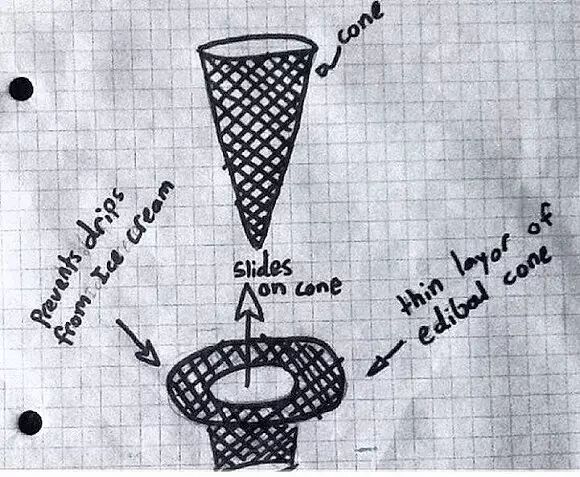 a cone
Prevents drips
from Ice cream
slides
on cone
thin layor of
edibal cone